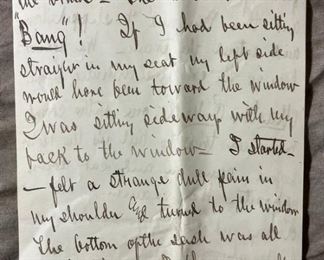 "Bang"! If I had been sitting
straight in my seat my left side
would have been toward the window
I was sitting sideways with my
back to the window – I started –
– felt a strange dull pain in
my shoulder and turned to the window
The bottom of the sash was all